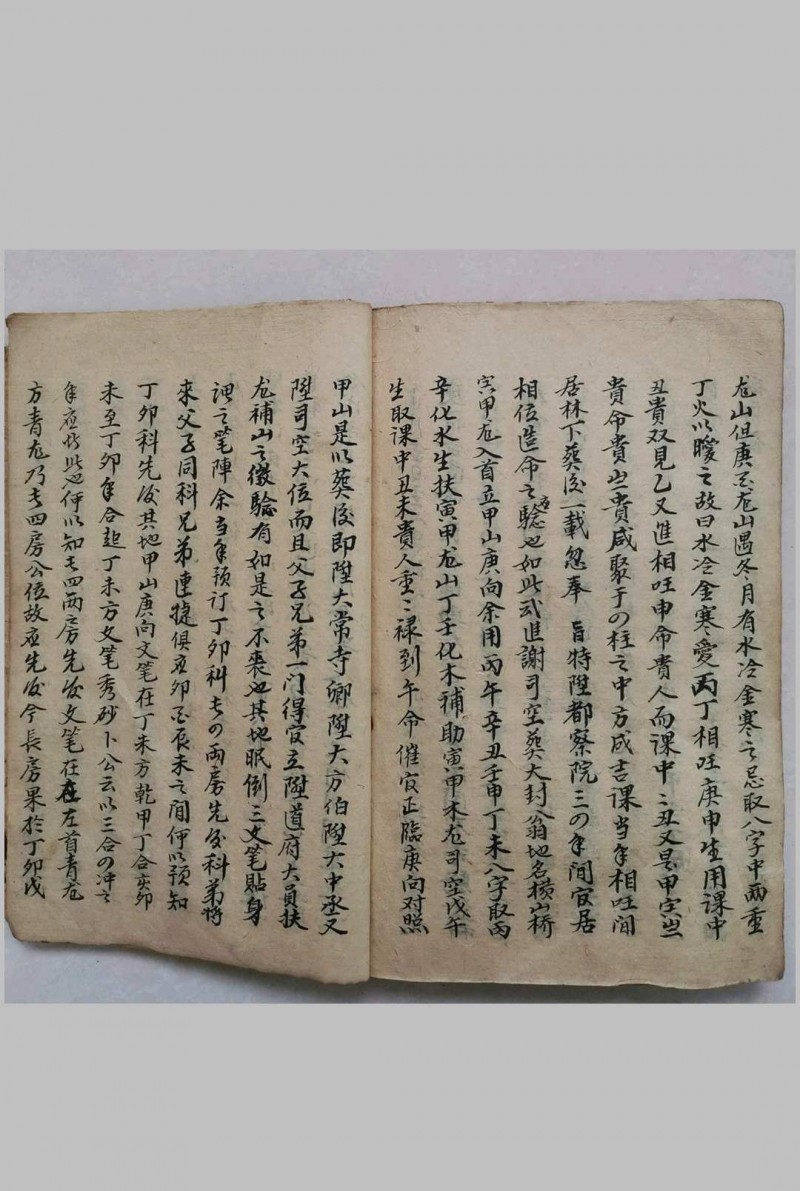 龙山但庚酉龙山遇冬月有水冷金寒之忌取八字中兩重
丁火以暖之故曰水冷金寒愛丙丁相旺庚申生用課中
丑貴双見乙又進相旺申命貴人而課中〻丑又是甲寅㞢
貴命貴㞢貴咸聚于の柱之中方成吉課当年相旺間
居林下葬後一載忽奉 旨特陞都察院三の年間官居
相位造命之應驗也如此弍進謝司空葬大封翁地名横山桥
寅甲龙入首立甲山庚向余用丙午辛丑壬申丁未八字取丙
辛化水生扶寅甲龙山丁壬化木補助寅甲木龙司空戊午
生取課中丑未貴人重〻禄到午命催官正臨庚向对照
甲山是以葬後即陞大常寺卿陞大方伯陞大中丞又
陞司空大位而且父子兄弟一门得官立陞道府大員扶
龙補山之徵驗有如是之不爽也其地眠倒三文笔貼身
謂之笔陣余当年預订丁卯科長の兩房先後科第将
來父子同科兄弟連捷俱在卯酉辰未之間何以預知
丁卯科先後其地甲山庚向文笔在丁未方乾甲丁合亥卯
未至丁卯年合起丁未方文笔秀砂卜公云以三合の冲之
年應皆此也何以知長四兩房先後文笔在在左首青龙
方青龙乃長四房公位故應先後今長房果於丁卯戊